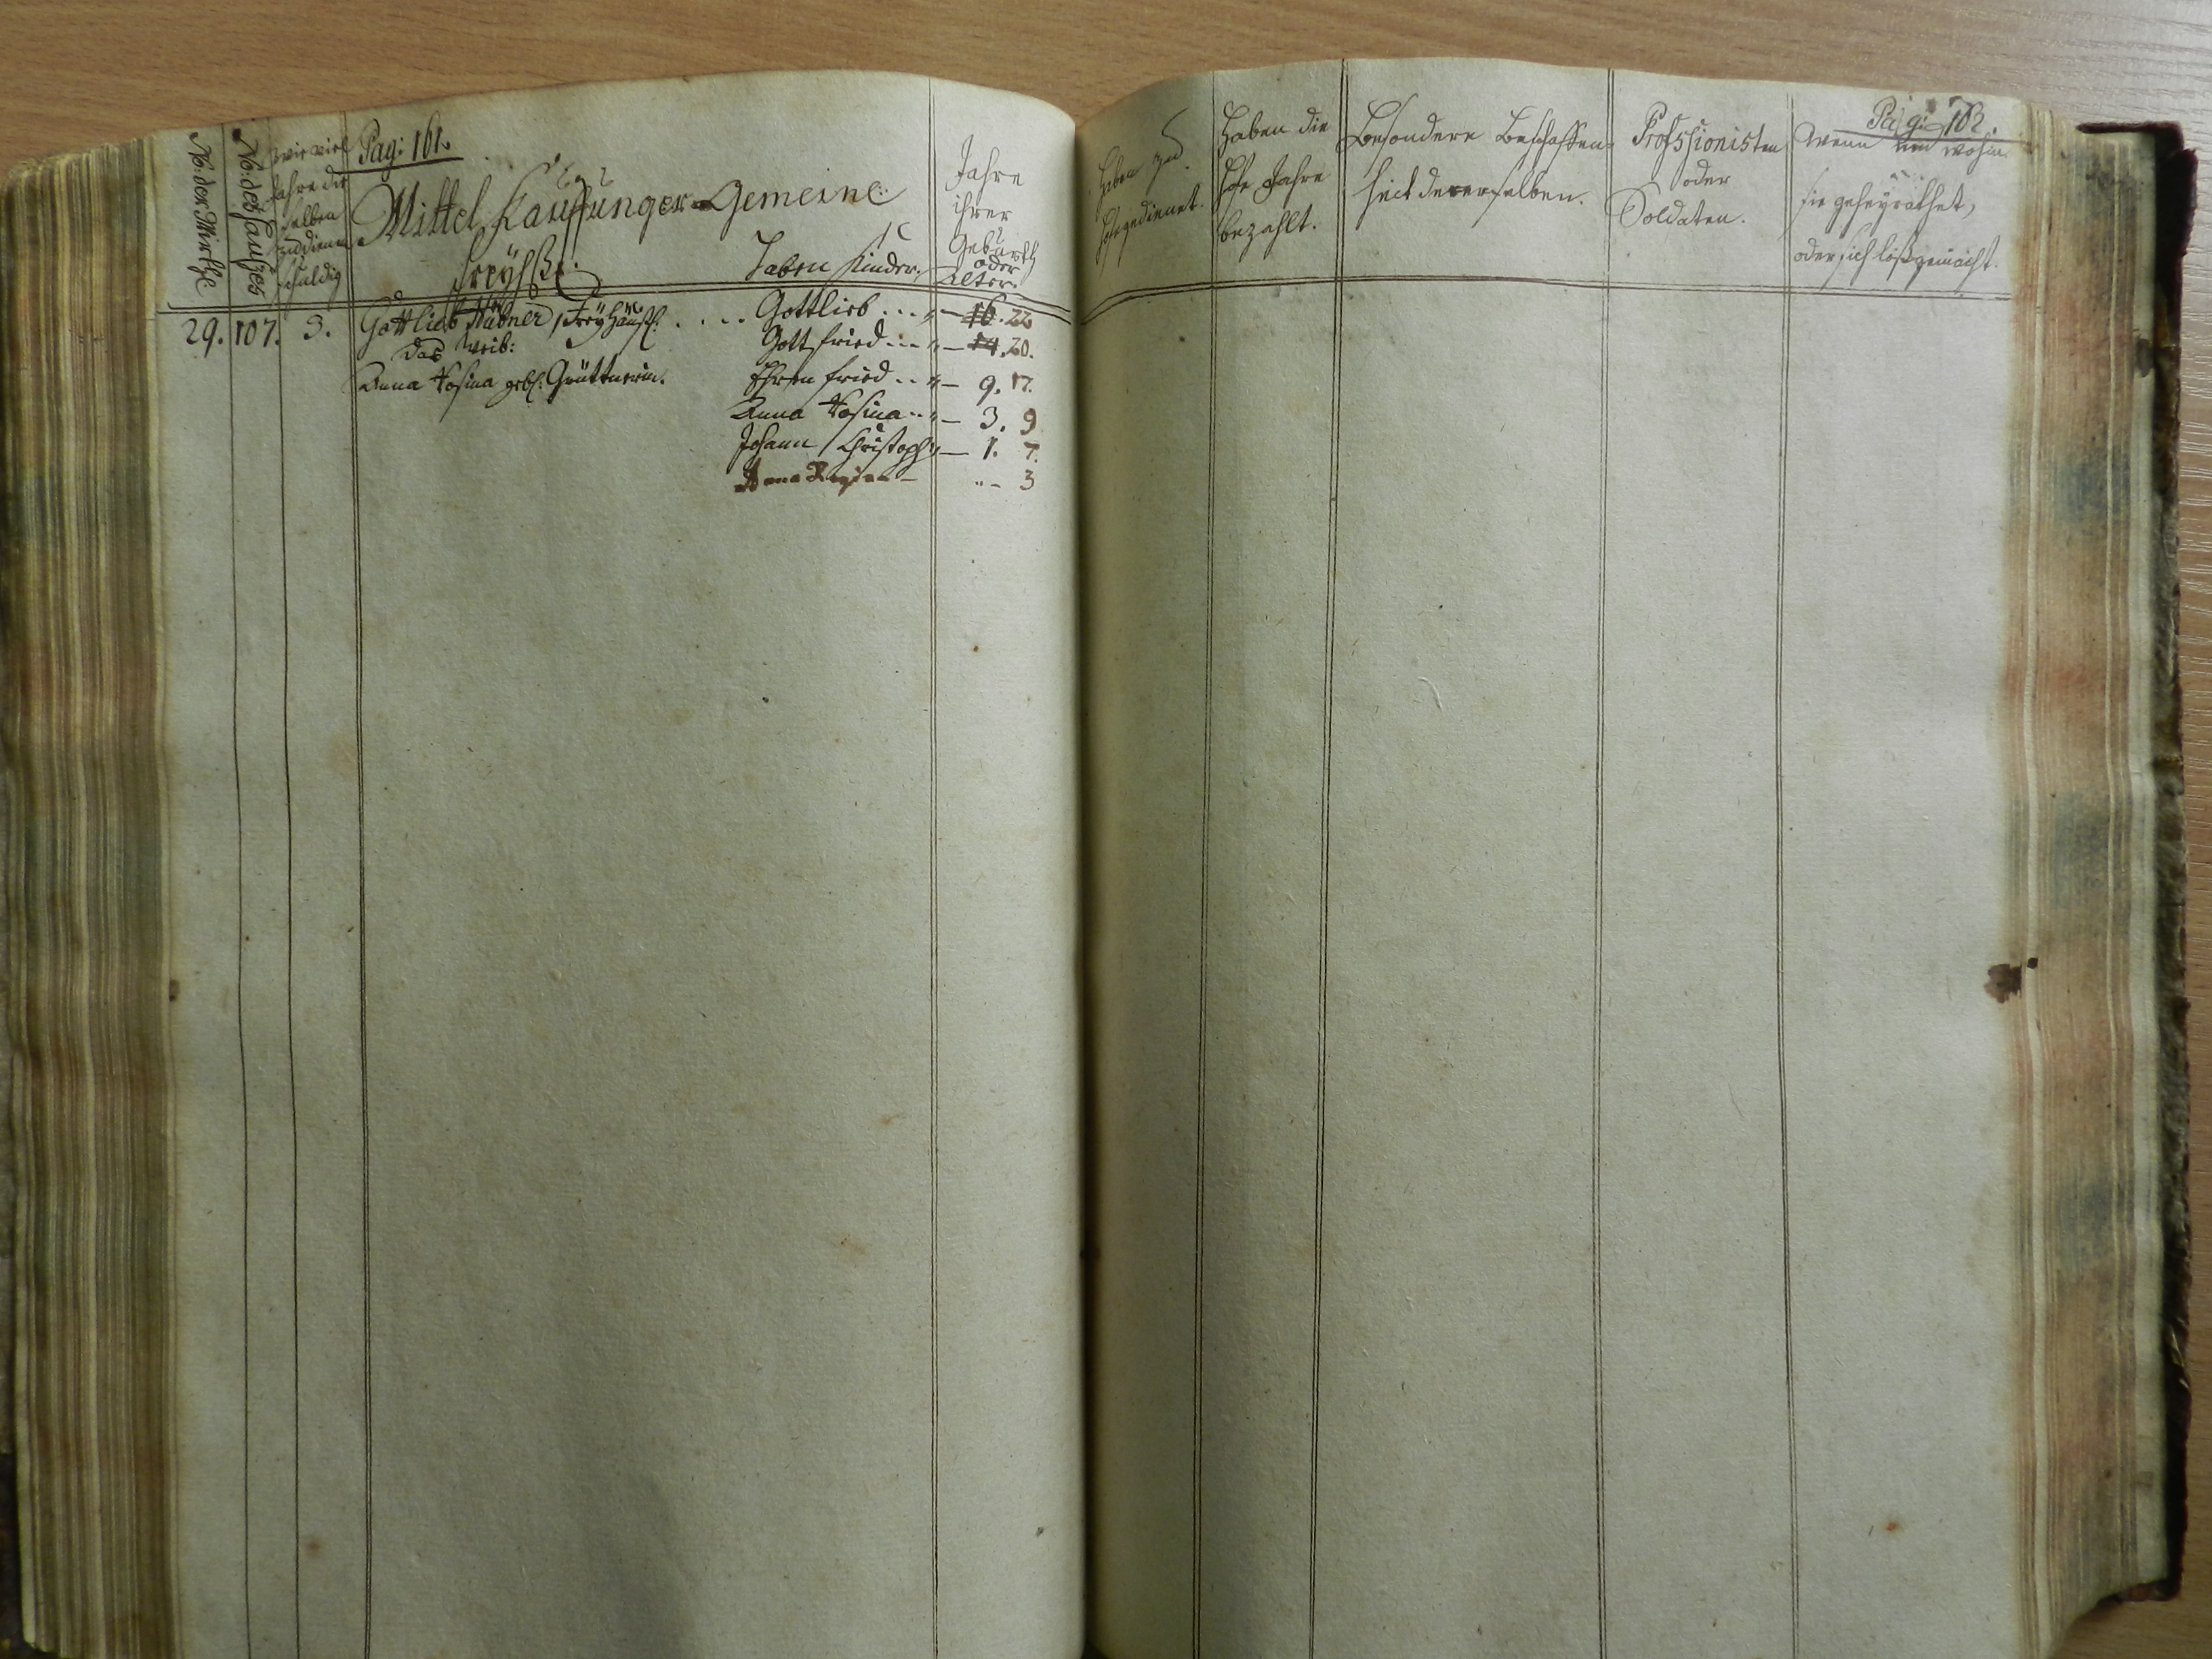 No: der Wirthe
No: des Hauses
wie viel
Jahre die
selben
zu dienen
schuldig
Pag: 161.
Mittel Kauffunger-Gemeine
Haben Kinder.
Jahre
ihrer
Geburth
oder
Alter.
29. 107. 3. Gottlieb Hübner, Freyhäusl: .... Gottlieb ... " — 16. 22
das Weib: Gottfried ... " — 14. 20.
Anna Rosina geb: Grüttnerin. Ehrenfried .. " — 9. 17.
Anna Rosina .. " — 3. 9
Johann Christoph " — 1. 7.
Anna — " — 3
Pag: 162
Haben
gedienet.
Haben die
Jahre
bezahlt.
Besondere Beschaffen-
heit dererselben.
Professionisten
oder
Soldaten.
Wenn und wohin
sie geheyrathet,
oder sich loßgemacht.